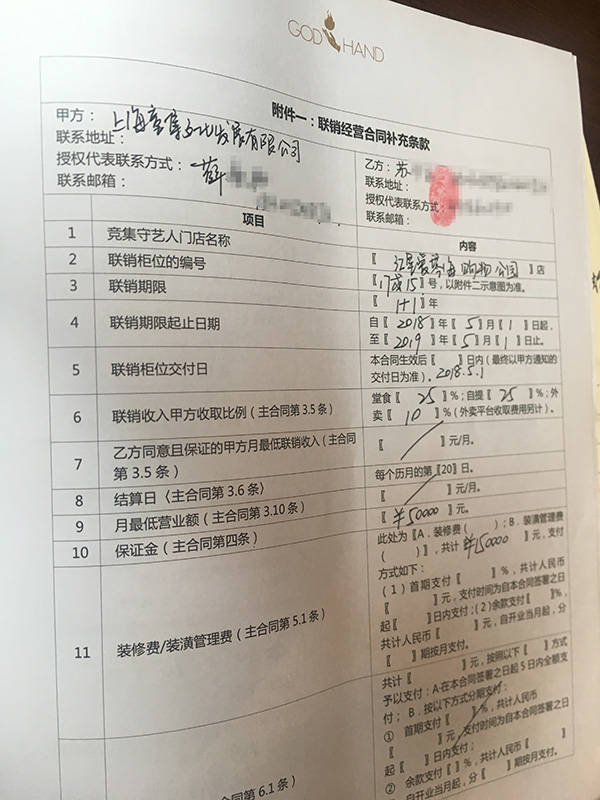 GOD HAND
附件一：联销经营合同补充条款
甲方：上海竞集文化发展有限公司
联系地址：
授权代表联系方式：薛
联系邮箱：
乙方：苏
联系地址：
授权代表联系方式：
联系邮箱：
项目 内容
1 竞集守艺人门店名称 【江星爱琴海购物公园】店
2 联销柜位的编号 【17或15】号，以附件二示意图为准。
3 联销期限 【1+1】年
4 联销期限起止日期 自【2018】年【5】月【1】日起，
至【2019】年【5】月【1】日止。
5 联销柜位交付日 本合同生效后【 】日内（最终以甲方通知的
交付日为准）。2018.5.1
6 联销收入甲方收取比例（主合同第3.5条） 堂食【25】%；自提【25】%；外
卖【10】%（外卖平台收取费用另计）。
7 乙方同意且保证的甲方月最低联销收入（主合同
第3.5条） 【 】元/月。
8 结算日〈主合同第3.6条〉 每个历月的第【20】日。
9 月最低营业额（主合同第3.10条） 【 】元/月。
10 保证金（主合同第四条） 【¥50000】元。
11 装修费/装潢管理费（主合同第5.1条） 此处为【A．装修费（ ）；B．装潢管理费
（ ）】，共计【¥150000】元，支付
方式如下：
（1）首期支付【 】%，共计人民币
【 】元，支付时间为自本合同签署之日
起【 】日内支付；（2）余款支付【 】%，
共计人民币【 】元，自开业当月起，分
【 】期按月支付。
第6.1条） 共计【 】元，按照以下【 】方式
予以支付：A.在本合同签署之日起5日内全额支
付；B．按以下方式分期支付：
① 首期支付【 】%，共计人民币
【 】元，支付时间为自本合同签署之日
起【 】日内支付；
② 余款支付【 】%，共计人民币【 】
元，自开业当月起，分【 】期按月支付。